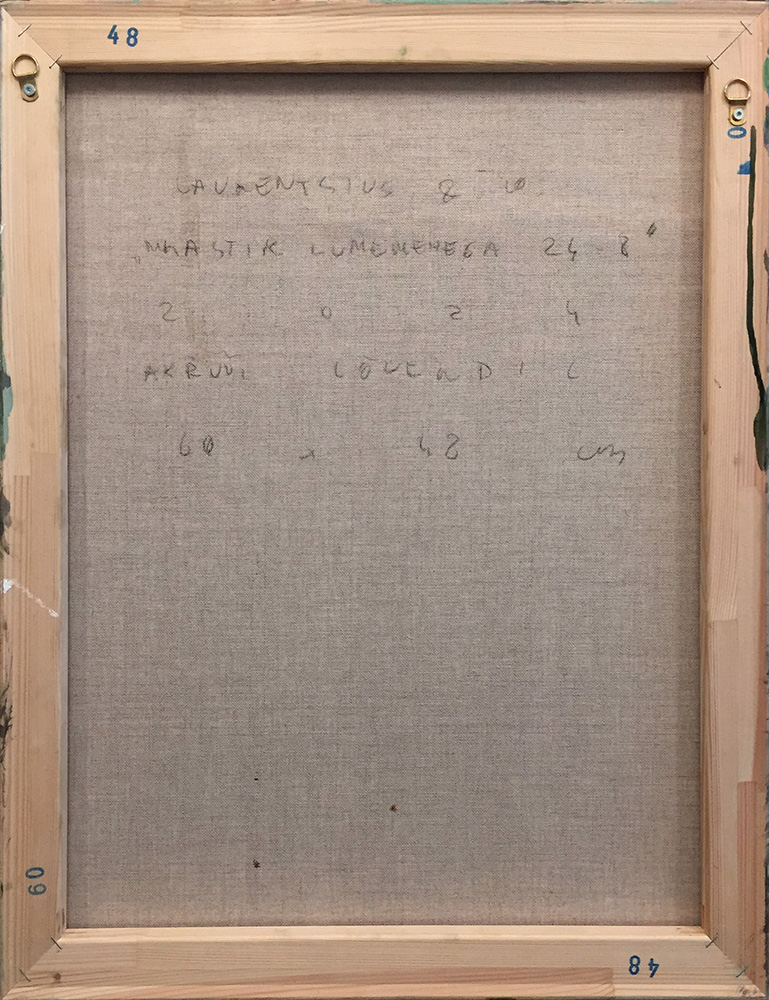 48
LAURENTSIUS
„MAASTIK LUMEMEHEGA 24 8"
2 0 2 4
AKRÜÜL LÕUENDIL
60 x 48 cm
60
48